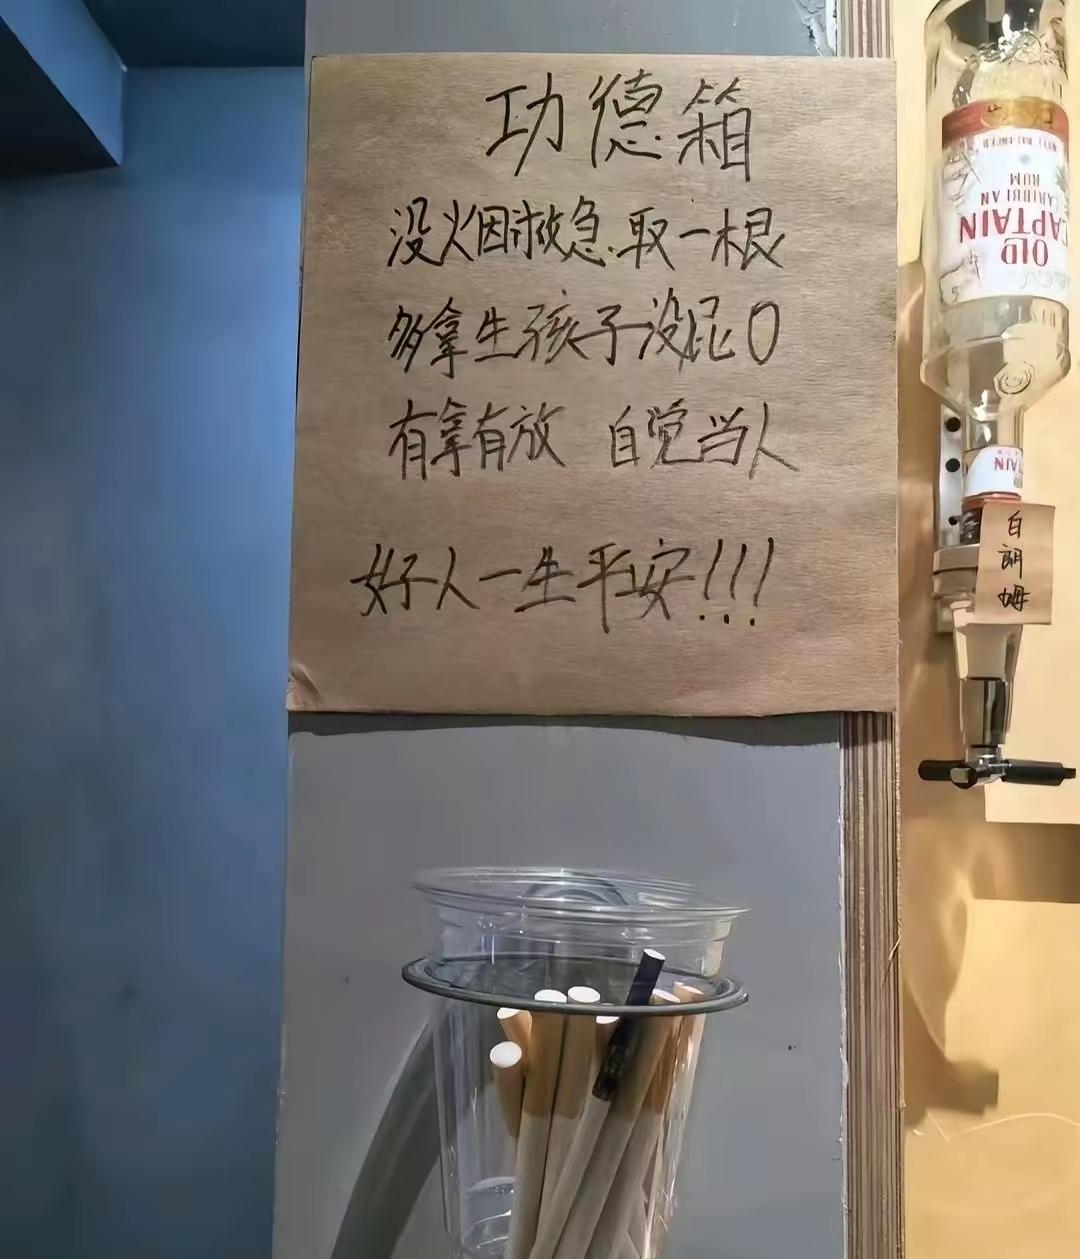 功德箱
没火烟救急.取一根
多拿生孩子没屁0
有拿有放 自觉当人
好人一生平安!!!
OLD
CAPTAIN
CARIBBEAN
RUM
白朗姆